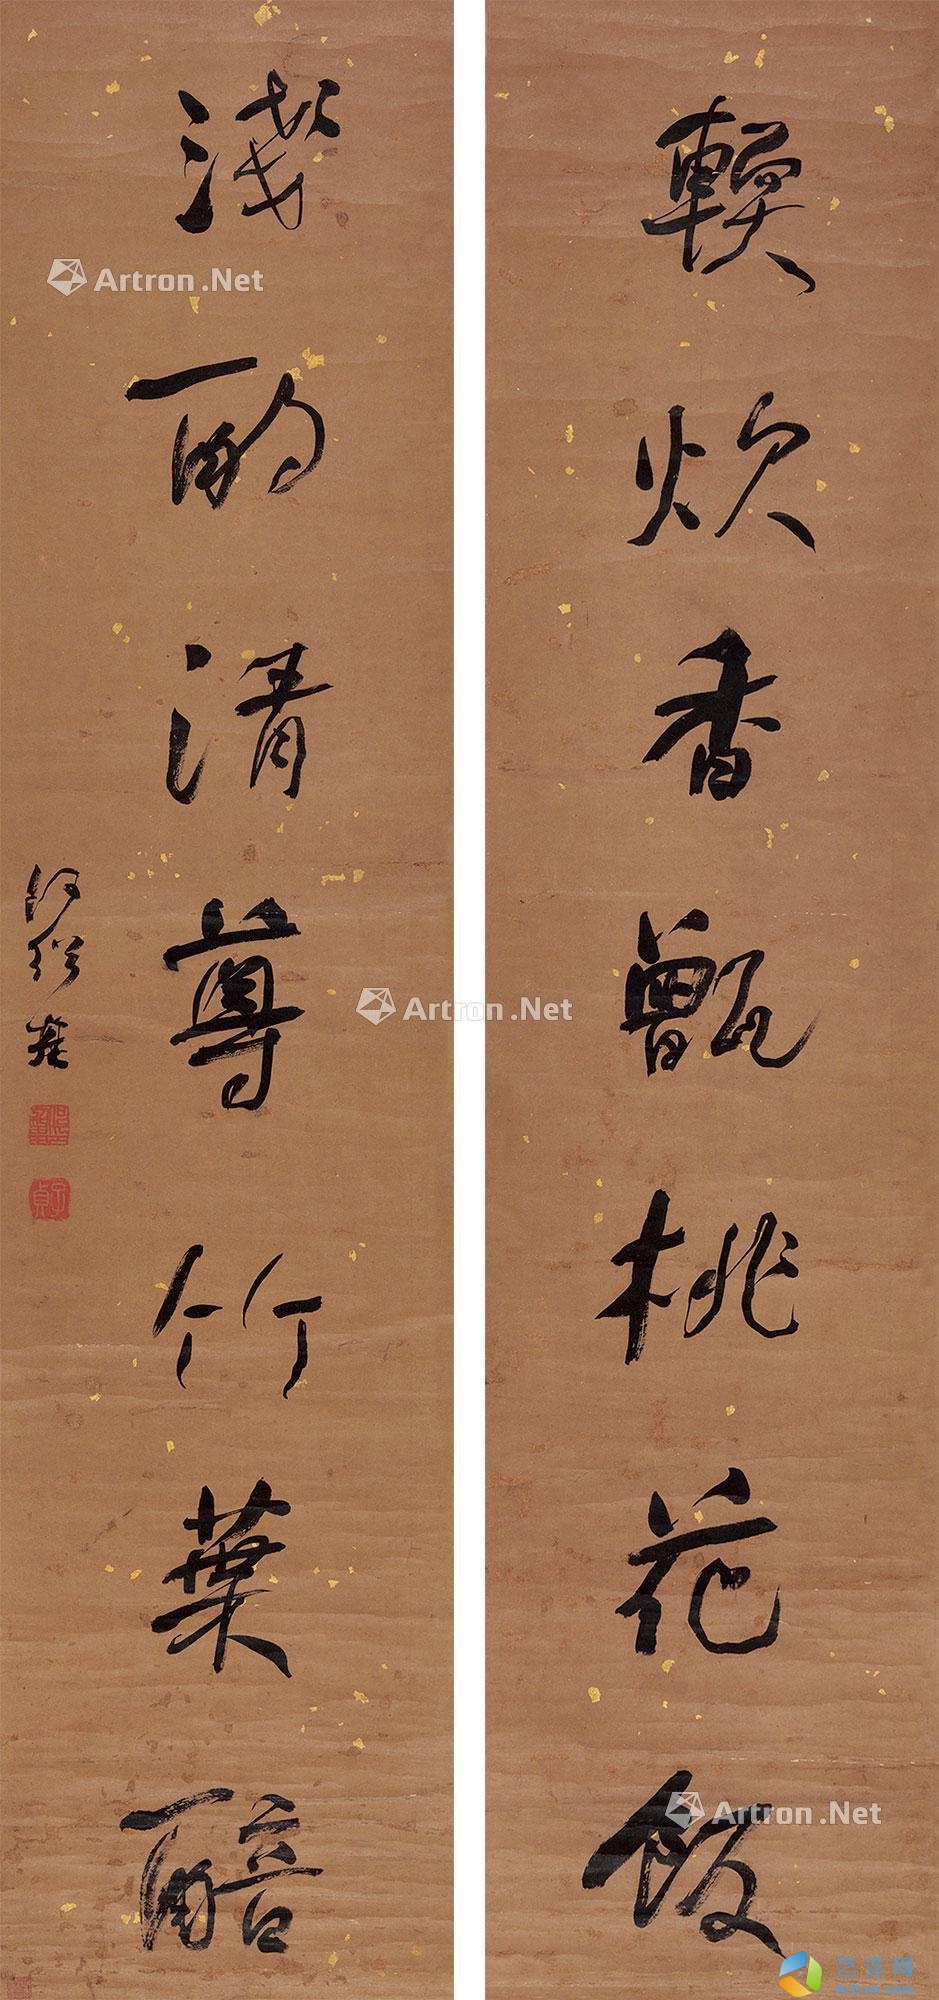 輭炊香甑桃花飯
淺酌清尊竹葉醅
何紹基
何紹基印
子貞
Artron.Net
Artron.Net
Artron.Net
艺连网